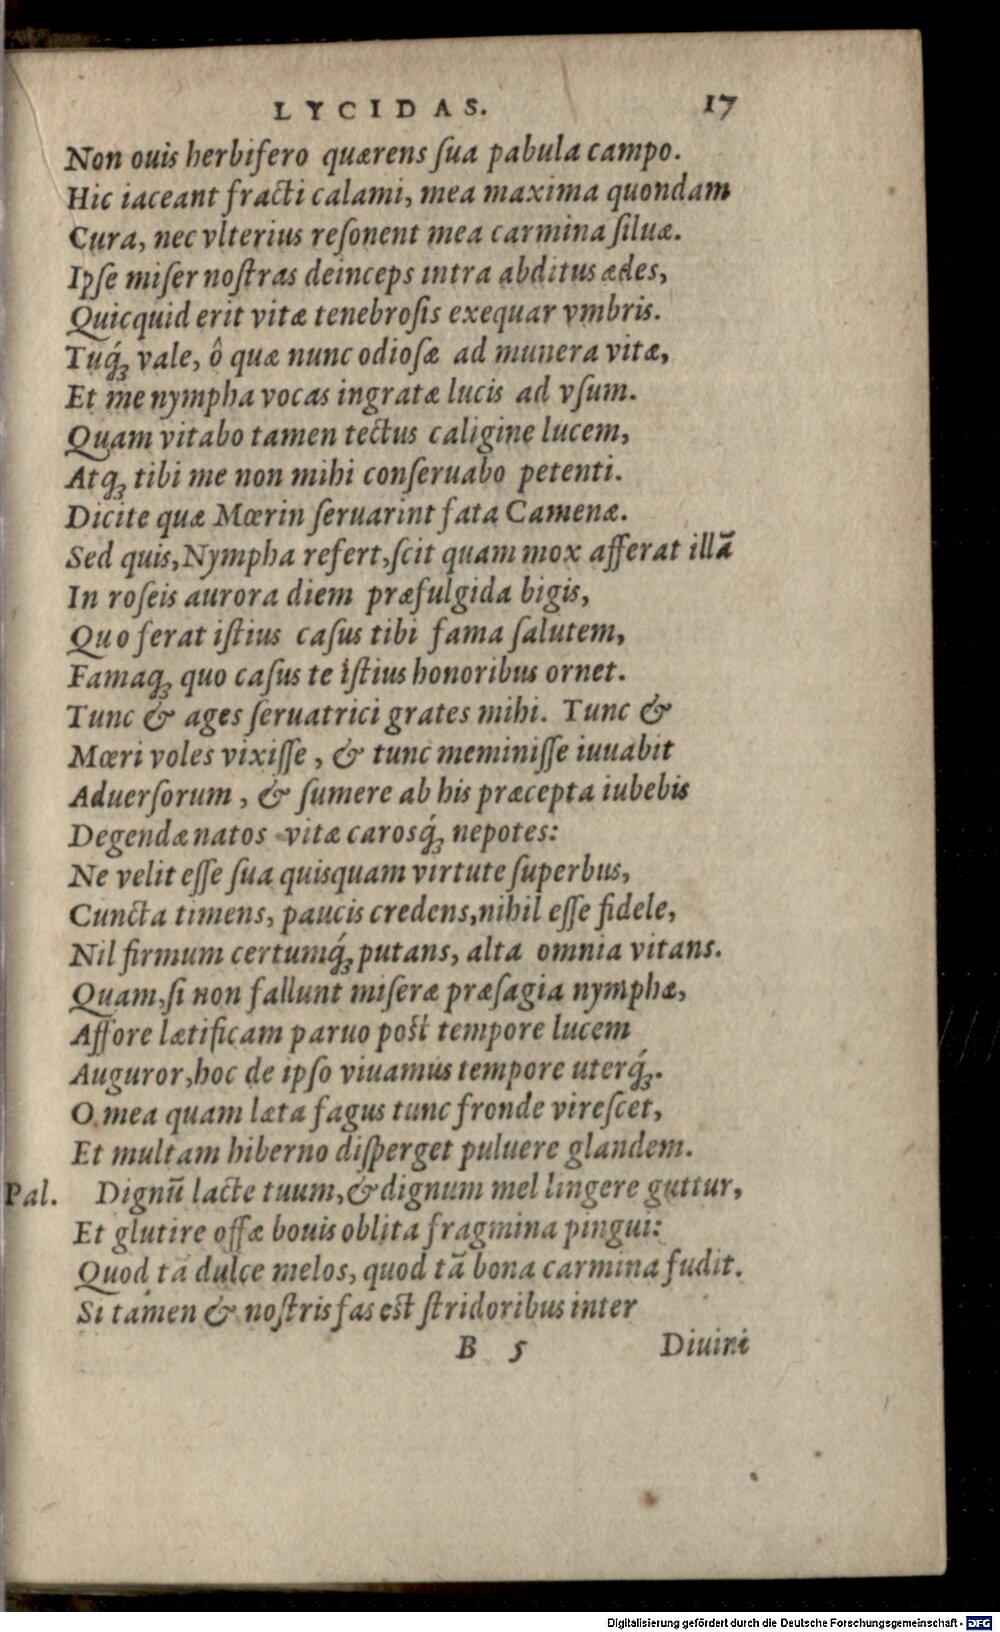 LYCIDAS. 17
Non ouis herbifero quærens ſua pabula campo.
Hic iaceant fracti calami, mea maxima quondam
Cura, nec vlterius reſonent mea carmina ſiluæ.
Ipſe miſer noſtras deinceps intra abditus ædes,
Quicquid erit vitæ tenebroſis exequar vmbris.
Tuq́ꝫ vale, ô quæ nunc odioſæ ad munera vitæ,
Et me nympha vocas ingratæ lucis ad vſum.
Quam vitabo tamen tectus caligine lucem,
Atqꝫ tibi me non mihi conſeruabo petenti.
Dicite quæ Mœrin ſeruarint fata Camenæ.
Sed quis, Nympha refert, ſcit quam mox afferat illã
In roſeis aurora diem præfulgida bigis,
Quo ferat iſtius caſus tibi fama ſalutem,
Famaqꝫ quo caſus te iſtius honoribus ornet.
Tunc & ages ſeruatrici grates mihi. Tunc &
Mœri voles vixiſſe, & tunc meminiſſe iuuabit
Aduerſorum, & ſumere ab his præcepta iubebis
Degendæ natos vitæ carosq́ꝫ nepotes:
Ne velit eſſe ſua quisquam virtute ſuperbus,
Cuncta timens, paucis credens, nihil eſſe fidele,
Nil firmum certumq́ꝫ putans, alta omnia vitans.
Quam, ſi non fallunt miſeræ præſagia nymphæ,
Affore lætificam paruo poſt tempore lucem
Auguror, hoc de ipſo viuamus tempore uterq́ꝫ.
O mea quam læta fagus tunc fronde vireſcet,
Et multam hiberno diſperget puluere glandem.
Pal. Dignũ lacte tuum, & dignum mel lingere guttur,
Et glutire offæ bouis oblita fragmina pingui:
Quod tã dulce melos, quod tã bona carmina fudit.
Si tamen & noſtris fas eſt ſtridoribus inter
B 5 Diuini
Digitalisierung gefördert durch die Deutsche Forschungsgemeinschaft - DFG